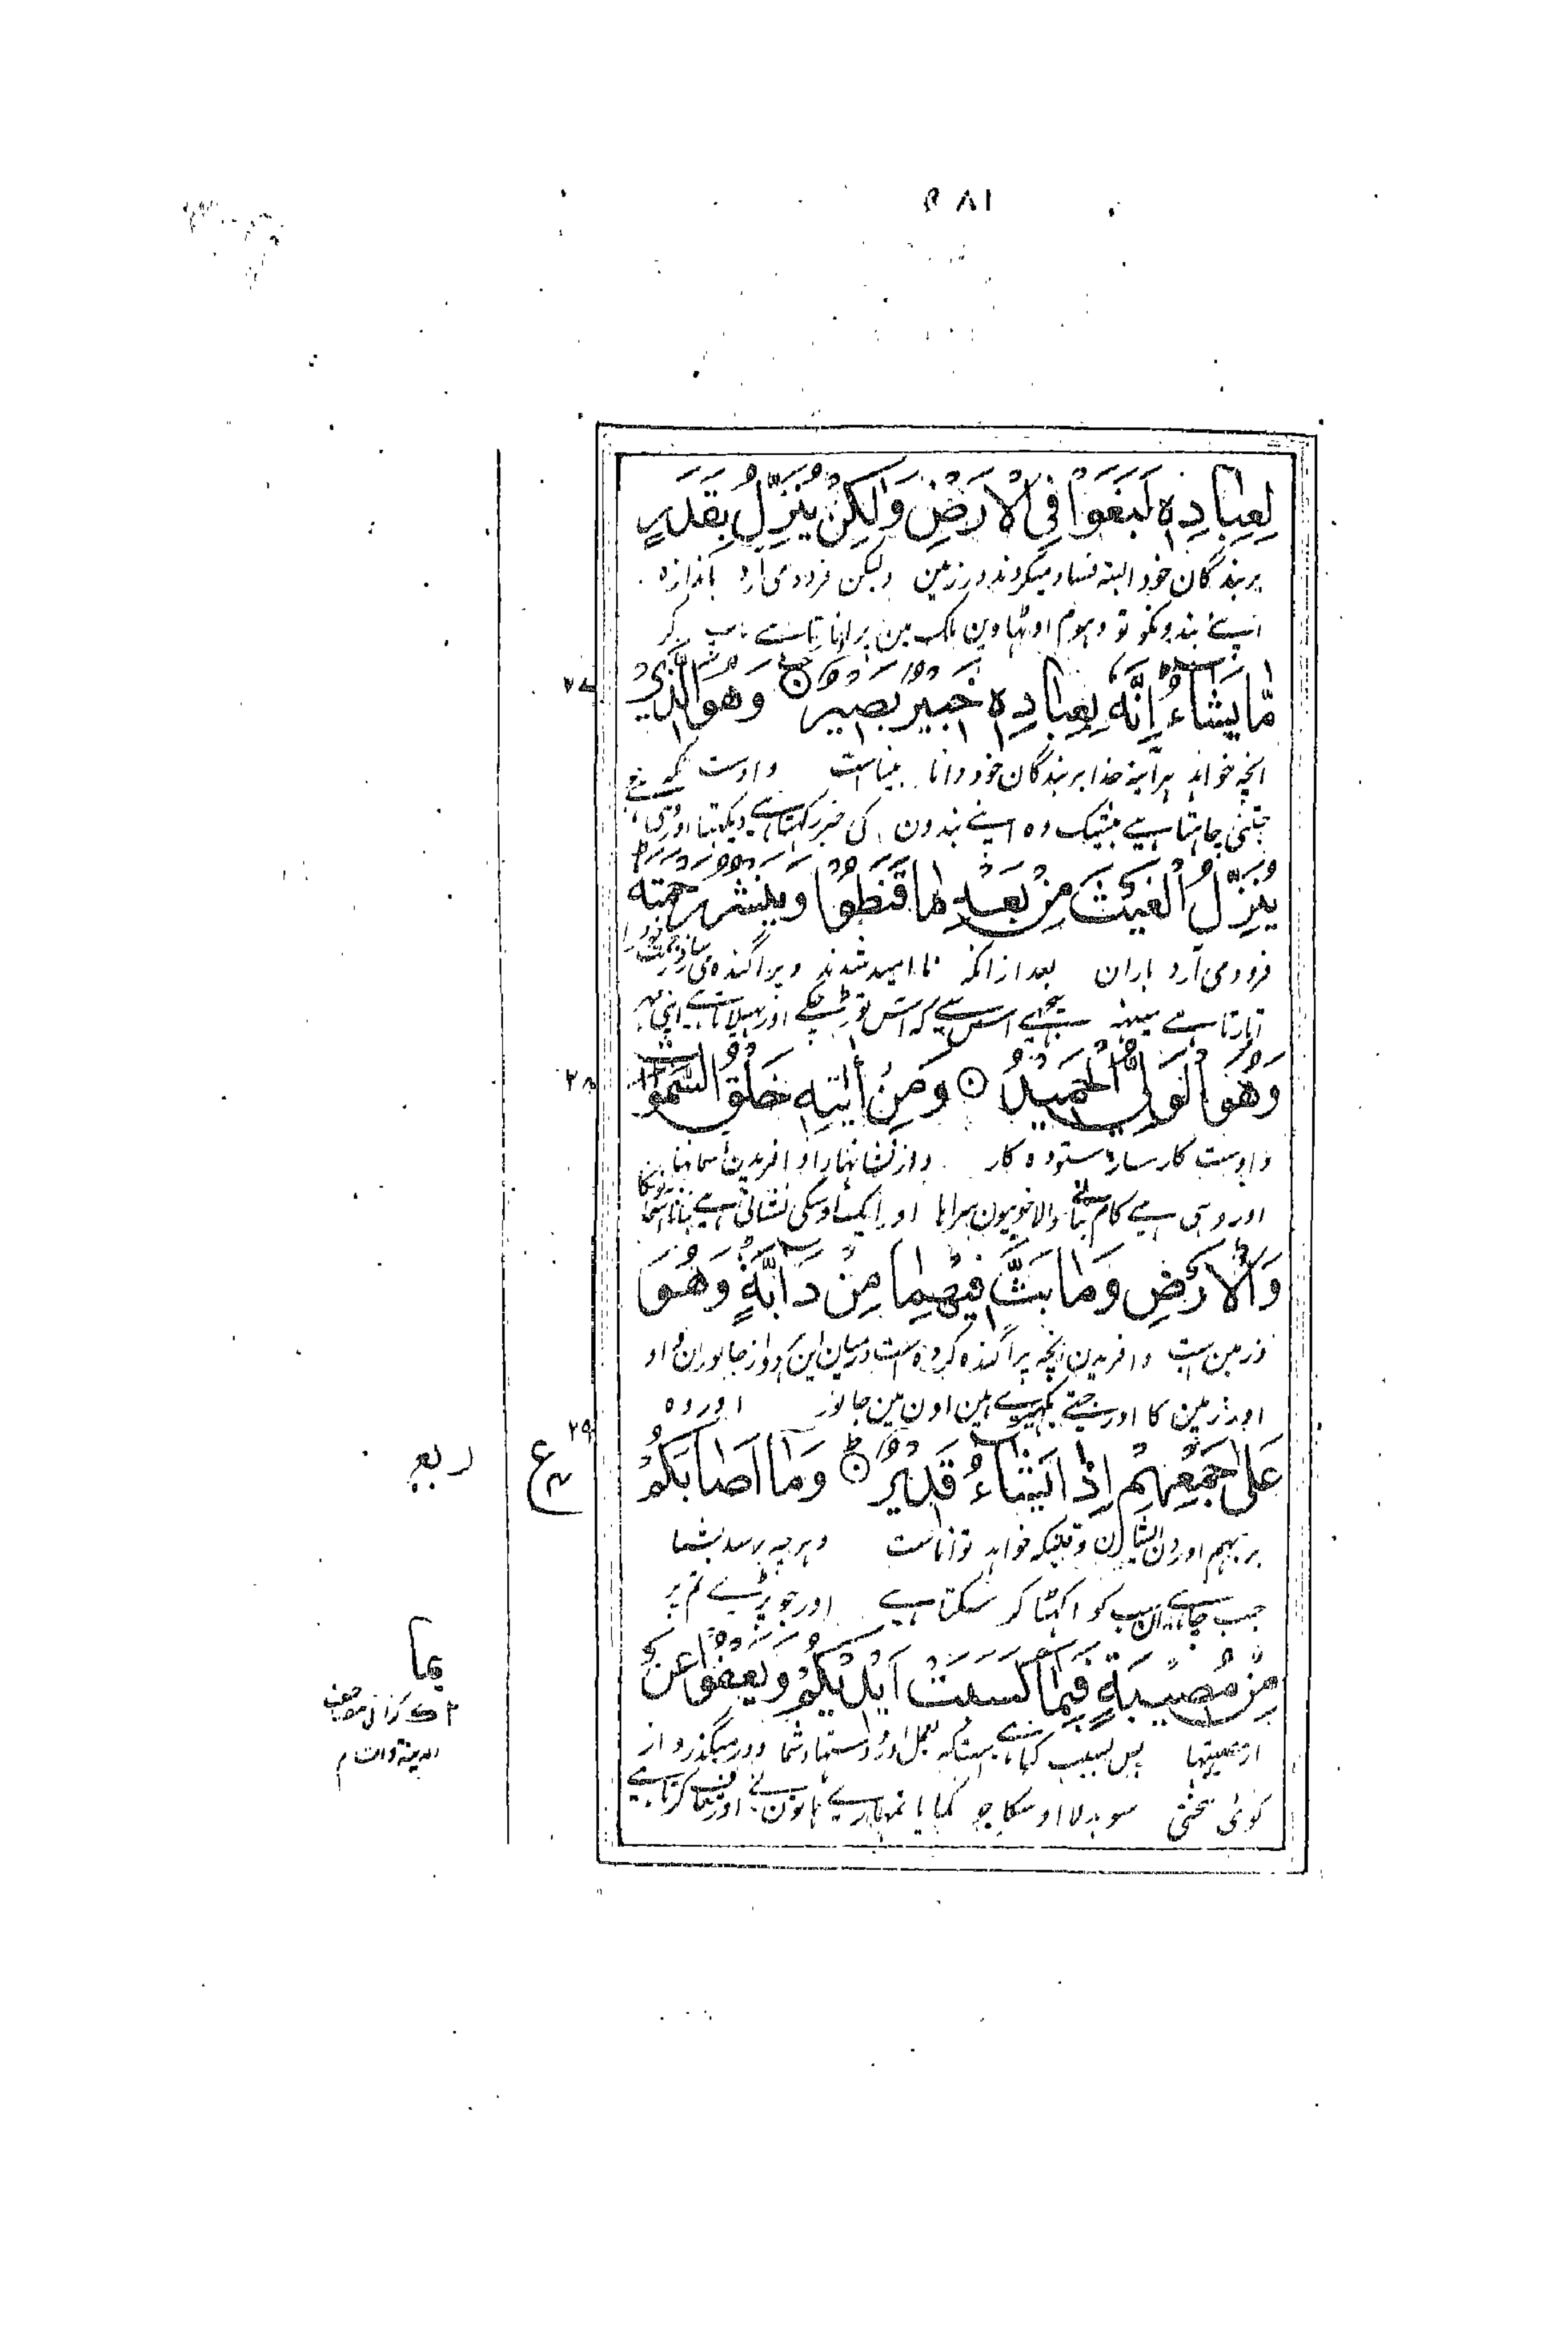 ۵۸۱
لِعِبَادِهٖ لَبَغَوْا فِي الْاَرْضِ وَلٰكِنْ يُّنَزِّلُ بِقَدَرٍ
بر بندگان خود البته فساد میکردند در زمین ولیکن فرود می آرد باندازه
اپنے بندونکو تو دہوم اوٹہاوین ملک مین پر اتارتا ہے ماپ کر
مَّا يَشَآءُ اِنَّهٗ بِعِبَادِهٖ خَبِيْرٌۢ بَصِيْرٌ وَهُوَ الَّذِيْ
۲۷
انچه خواهد هرآینه خدا بر بندگان خود دانا بیناست و اوست که
جتنی چاہتا ہے بیشک وہ اپنے بندون کی خبر رکہتا ہے دیکہتا اور وہی ہے
يُنَزِّلُ الْغَيْثَ مِنْۢ بَعْدِ مَا قَنَطُوْا وَيَنْشُرُ رَحْمَتَهٗ
فرود می آرد باران بعد از انکه نا امید شدند و پراگنده می سازد رحمت خود را
اتارتا ہے مینہہ پیچہے اس سے کہ آس توڑ چکے اور پہیلاتا ہے اپنی مہر
وَهُوَ الْوَلِيُّ الْحَمِيْدُ وَمِنْ اٰيٰتِهٖ خَلْقُ السَّمٰوٰتِ
۲۸
و اوست کارساز ستوده کار و از نشانهای او آفریدن آسمانها
اور وہی ہے کام بنانے والا خوبیون سراہا اور ایک اوسکی نشانی ہے بنانا آسمانونکا
وَالْاَرْضِ وَمَا بَثَّ فِيْهِمَا مِنْ دَآبَّةٍ وَهُوَ
و زمین ست و آفریدن آنچه پراگنده کرده است درمیان این دو از جانوران و او
اور زمین کا اور جتنے بکہیرے ہین اون مین جانور اور وہ
عَلٰى جَمْعِهِمْ اِذَا يَشَآءُ قَدِيْرٌ وَمَآ اَصَابَكُمْ
۲۹
ع
ربع
بر بهم آوردن ایشان وقتیکه خواهد تواناست و هر چه برسد بشما
جب چاہے ان سب کو اکہٹا کر سکتا ہے اور جو پڑے تم پر
مِّنْ مُّصِيْبَةٍ فَبِمَا كَسَبَتْ اَيْدِيْكُمْ وَيَعْفُوْا عَنْ
بما
از مصیبتها پس بسبب گناهی است که بعمل آورد دستهای شما و در میگذرد از
کوئی سختی سو بدلا اوسکا جو کمایا تمہارے ہاتون نے اور معاف کرتا ہے